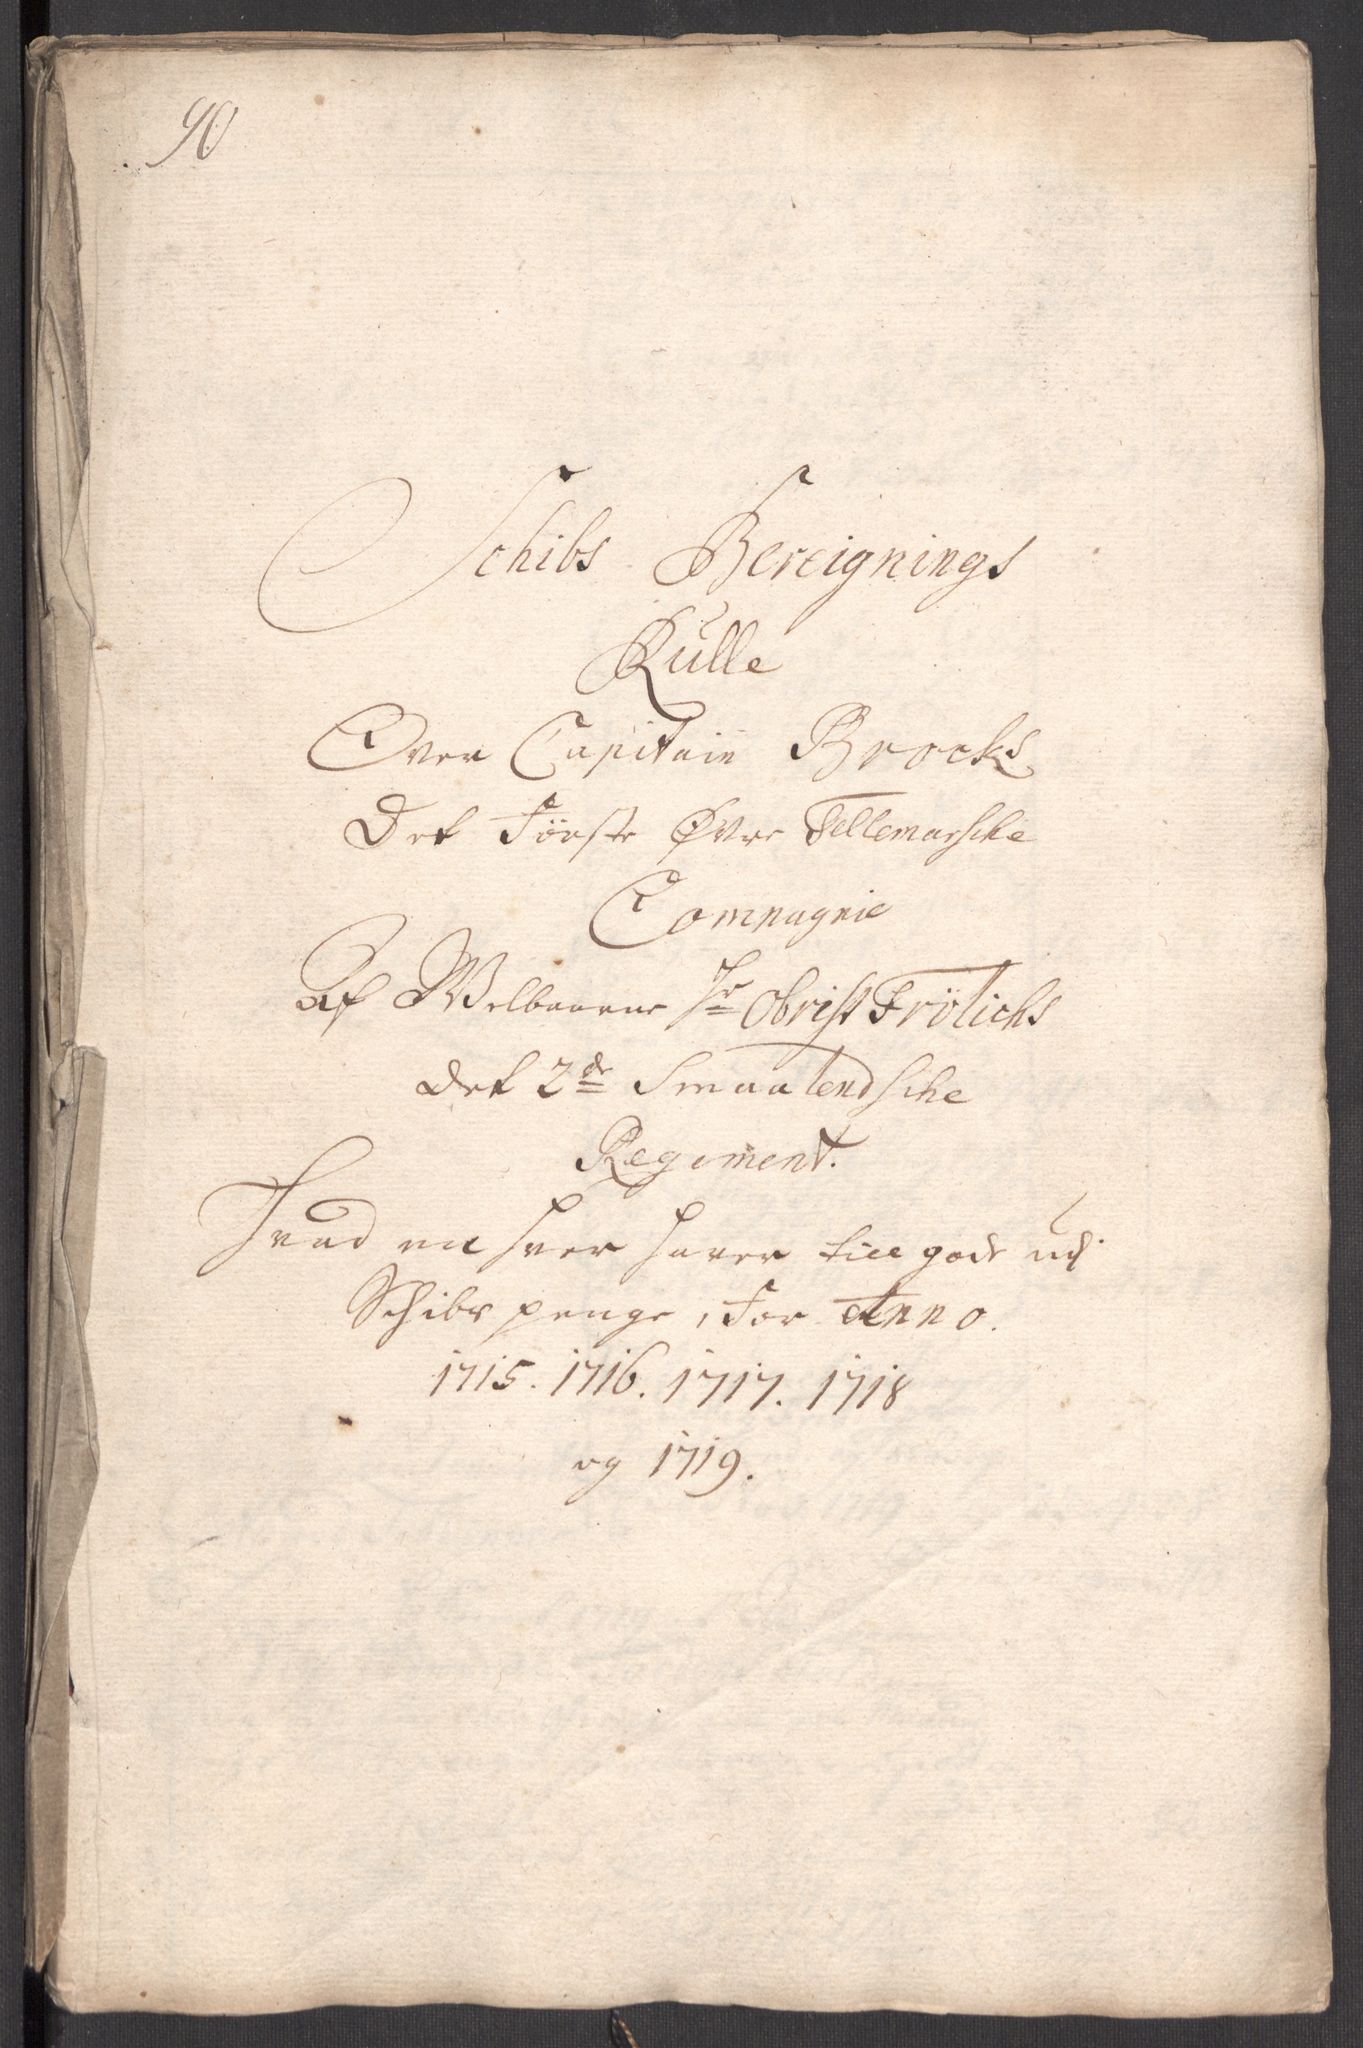 90
Schibs Bereignings
Rulle
Over Capitain Brocks
Det Förste Øvre Tellemarsche
Compagnie
Af Welbaarne Hr Obrist Frölichs
det 2de Smaalendsche
Regiment.
Hvad en hver haver till gode udj
Schibs penge, for Anno.
1715. 1716. 1717. 1718
og 1719.